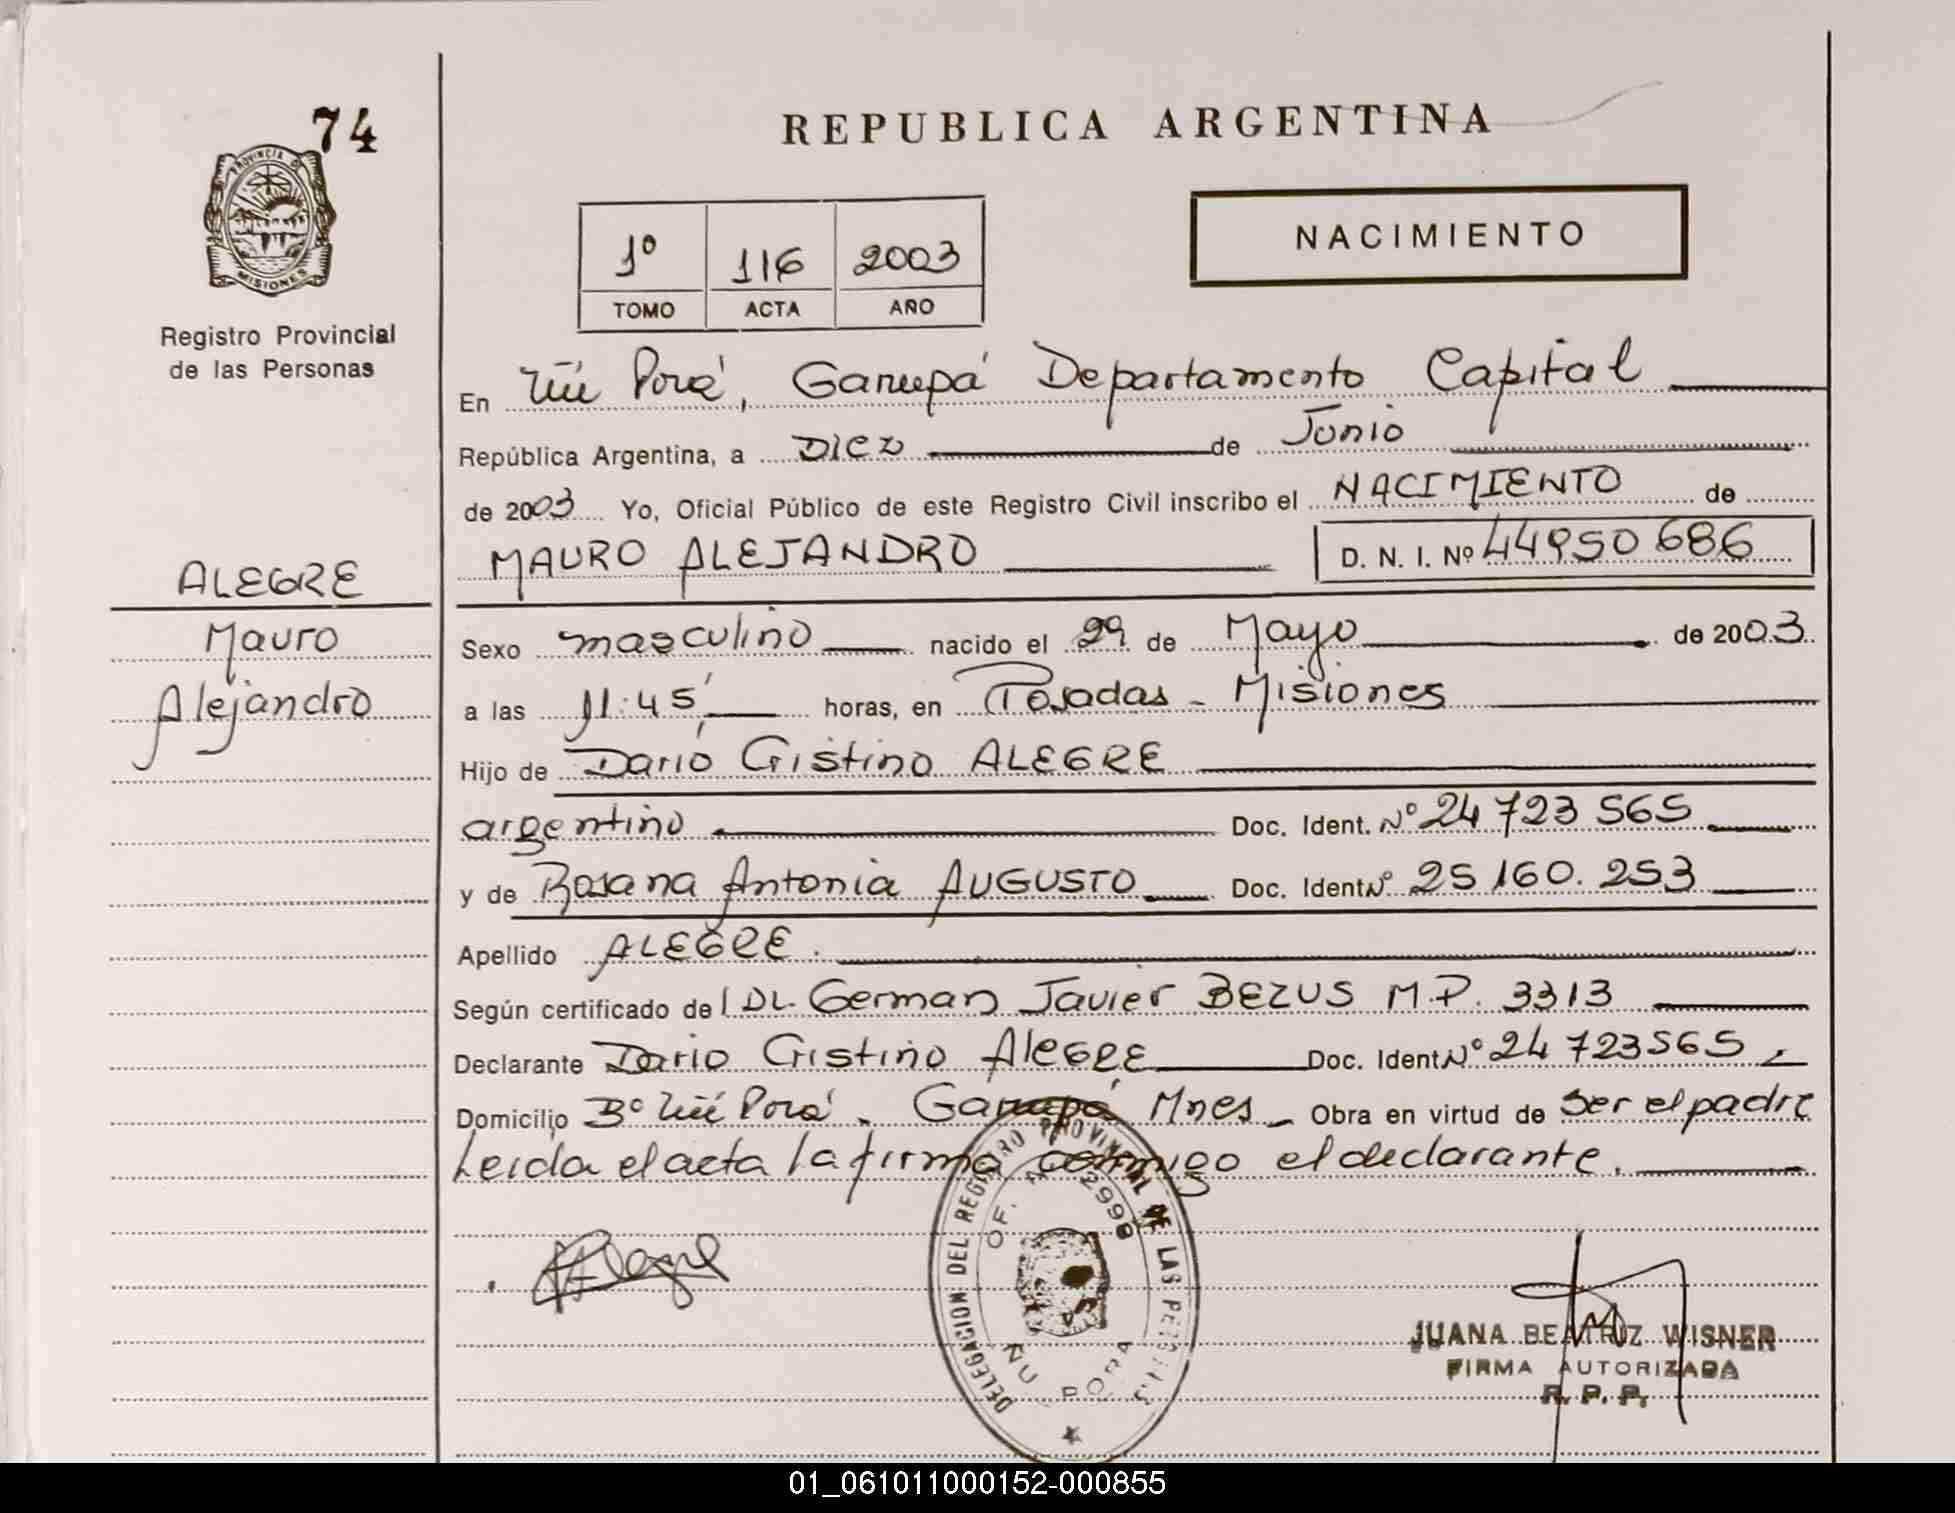 74
PROVINCIA DE
MISIONES
Registro Provincial
de las Personas
ALEGRE
Mauro
Alejandro
REPUBLICA ARGENTINA
1º 116 2003
TOMO ACTA AÑO
NACIMIENTO
En Ñú Porá, Garupá Departamento Capital
República Argentina, a Diez de Junio
de 2003 Yo, Oficial Público de este Registro Civil inscribo el NACIMIENTO de
MAURO ALEJANDRO D. N. I. Nº 44950686
Sexo masculino nacido el 29 de Mayo de 2003
a las 11:45 horas, en Posadas - Misiones
Hijo de Darío Cristino ALEGRE
argentino Doc. Ident. Nº 24 723 565
y de Rosana Antonia AUGUSTO Doc. Ident Nº 25 160.253
Apellido ALEGRE.
Según certificado de l Dr. German Javier BEZUS M.P. 3313
Declarante Dario Cristino AlEGRE Doc. Ident Nº 24 723565
Domicilio Bº Ñú Porá - Garupá Mnes - Obra en virtud de ser el padre
Leida el acta la firma conmigo el declarante.
Alegre
DELEGACION DEL REGISTRO PROVINCIAL DE LAS PERSONAS
OF. 2998
ÑU PORA
JUANA BEATRIZ WISNER
FIRMA AUTORIZADA
R. P. P.
01_061011000152-000855